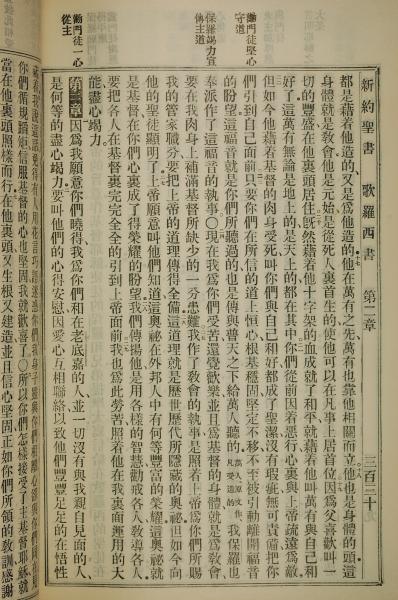 新約聖書 歌羅西書 第二章 三百三十
勸門徒堅心守道
保羅竭力宣傳主道
勸門徒一心從主
都是藉着他造的、又是爲他造的、他在萬有之先、萬有也靠他相關而立、他也是身體的頭、這
身體就是教會、他是元始、是從死人裏首生的、使他可以在凡事上居首位、因爲父喜歡叫一
切的豐盛在他裏頭居住、旣然藉着他十字架的血成就了和平、就藉着他叫萬有與自己和
好了、這萬有無論是地上的、是天上的、都在其中、你們從前因着惡行、心裏與上帝疏遠爲敵、
但如今他藉着基督的肉身受死、叫你們與自己和好、都成了聖潔、沒有瑕疵、無可責備、把你
們引到自己面前、只要你們在所信的道上恒心、根基穩固、堅定不移、不至被引動離開福音
的盼望、這福音就是你們所聽過的、也是傳與普天之下給萬人聽的、我保羅也
奉派作了這福音的執事、〇現在我爲你們受苦、還覺歡樂、並且爲基督的身體、就是爲教會、
要在我肉身上補滿基督所缺少的一分患難、我作了教會的執事、是照着上帝爲你們所賜
我的管家職分、要把上帝的道理傳得全備、這道理就是歷世歷代所隱藏的奧祕、但如今向
他的聖徒顯明了、上帝願意叫他們知道這奧祕在外邦人中有何等豐富的榮耀、這奧祕就
是基督在你們心裏成了得榮耀的盼望、我們傳揚他、是用各樣的智慧勸戒各人、教導各人、
要把各人在基督裏完完全全的引到上帝面前、我也爲此勞苦、照着他在我裏面運用的大
能盡心竭力、
第二章 因爲我願意你們曉得、我爲你們和在老底嘉的人、並一切沒有與我親自見面的人、
是何等的盡心竭力、要叫他們的心得安慰、因愛心互相聯絡、以致他們豐豐足足的在悟性
你們循規蹈矩、信服基督的心也堅固、我就歡喜了、〇所以你們怎樣接受了主基督耶穌、就
當在他裏頭照樣而行、在他裏頭又生根、又建造、並且信心堅固、正如你們所領的教訓、感謝